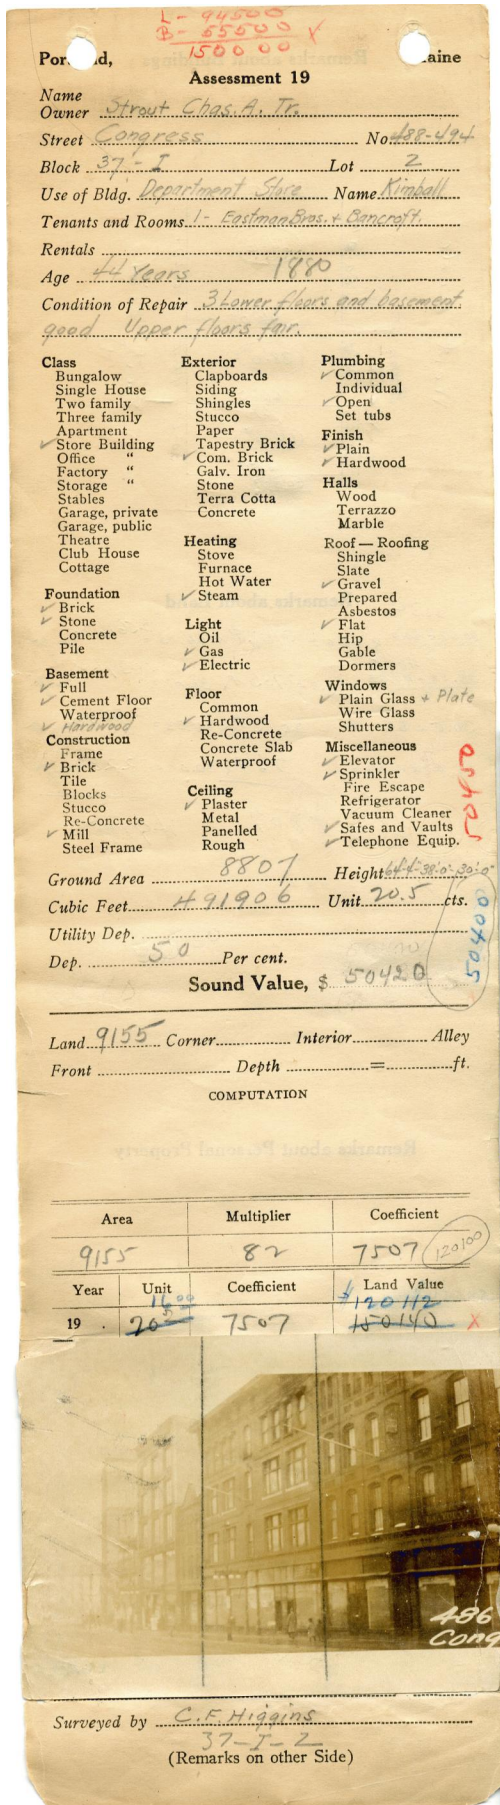 L - 94500
B - 55500
150000 X
Portland, Maine
Assessment 19
Name
Owner Strout Chas. A. Tr.
Street Congress No. 488-494
Block 37-I Lot 2
Use of Bldg. Department Store Name Kimball
Tenants and Rooms 1- Eastman Bros. + Bancroft.
Rentals
Age 44 Years 1880
Condition of Repair 3 Lower floors and basement
good Upper floors fair.
Class
Bungalow
Single House
Two family
Three family
Apartment
✓ Store Building
Office "
Factory "
Storage "
Stables
Garage, private
Garage, public
Theatre
Club House
Cottage
Foundation
✓ Brick
✓ Stone
Concrete
Pile
Basement
✓ Full
✓ Cement Floor
Waterproof
✓ Hardwood
Construction
Frame
✓ Brick
Tile
Blocks
Stucco
Re-Concrete
✓ Mill
Steel Frame
Exterior
Clapboards
Siding
Shingles
Stucco
Paper
Tapestry Brick
✓ Com. Brick
Galv. Iron
Stone
Terra Cotta
Concrete
Heating
Stove
Furnace
Hot Water
✓ Steam
Light
Oil
✓ Gas
✓ Electric
Floor
Common
✓ Hardwood
Re-Concrete
Concrete Slab
Waterproof
Ceiling
✓ Plaster
Metal
Panelled
Rough
Plumbing
✓ Common
Individual
✓ Open
Set tubs
Finish
✓ Plain
✓ Hardwood
Halls
Wood
Terrazzo
Marble
Roof — Roofing
Shingle
Slate
✓ Gravel
Prepared
Asbestos
✓ Flat
Hip
Gable
Dormers
Windows
✓ Plain Glass + Plate
Wire Glass
Shutters
Miscellaneous
✓ Elevator
✓ Sprinkler
Fire Escape
Refrigerator
Vacuum Cleaner
✓ Safes and Vaults
✓ Telephone Equip.
Ground Area 8807 Height 64'-4"-38'-0"-30'-0"
Cubic Feet 491906 Unit 20.5 cts.
Utility Dep.
Dep. 50 Per cent.
50400
Sound Value, $ 50420
Land 9155 Corner Interior Alley
Front Depth = ft.
COMPUTATION
Area Multiplier Coefficient
9155 82 7507 120100
Year Unit Coefficient Land Value
16.00 $120112
19 . 20 7507 150140 X
486
Cong
Surveyed by C. F. Higgins
37-I-2
(Remarks on other Side)